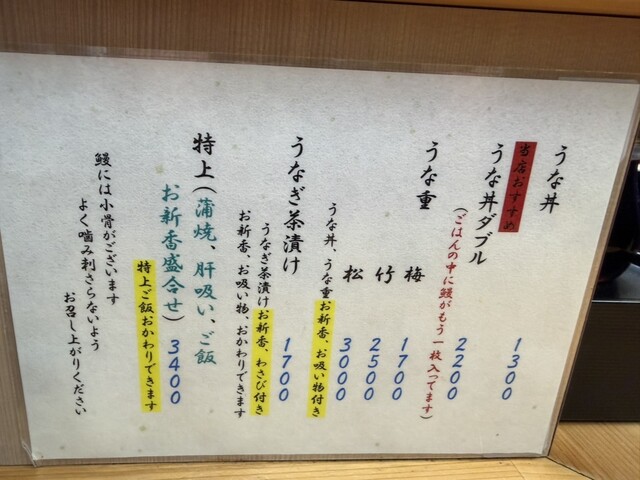 うな丼 1300
当店おすすめ
うな丼ダブル 2200
(ごはんの中に鰻がもう一枚入ってます)
うな重
梅 1700
竹 2500
松 3000
うな丼、うな重お新香、お吸い物付き
うなぎ茶漬け 1700
うなぎ茶漬けお新香、わさび付き
お新香、お吸い物、おかわりできます
特上(蒲焼、肝吸い、ご飯
お新香盛合せ) 3400
特上ご飯おかわりできます
鰻には小骨がございます
よく噛み刺さらないよう
お召し上がりください